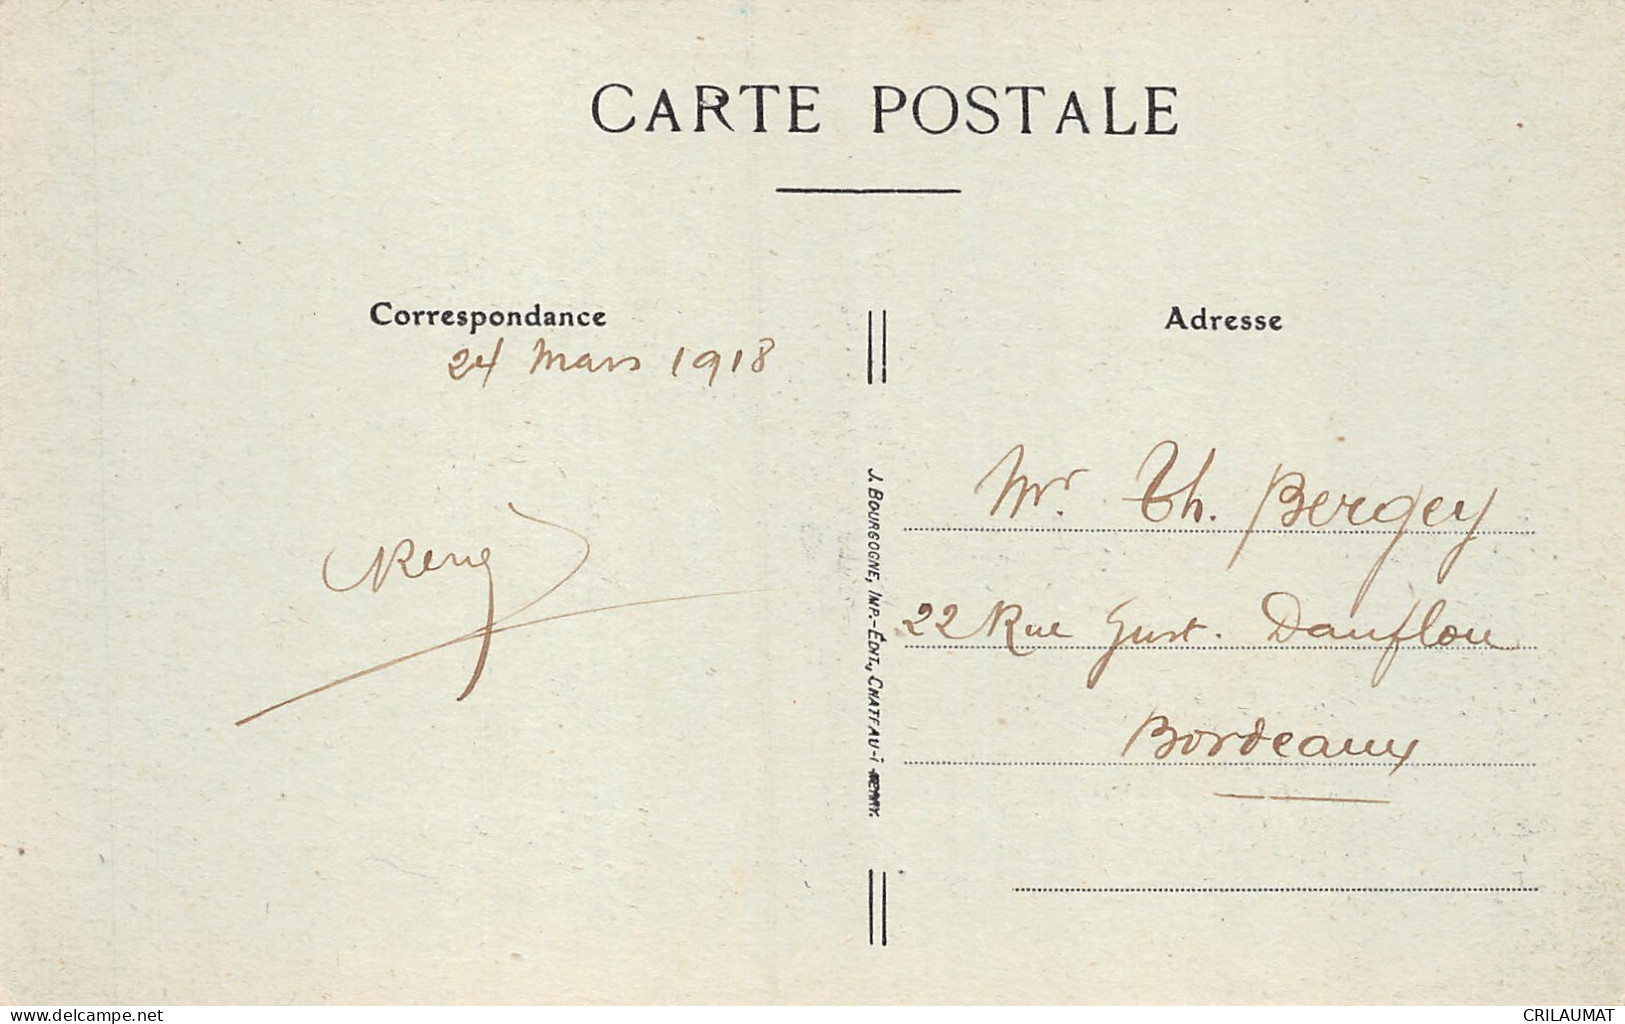 CARTE POSTALE
Correspondance
24 Mars 1918
René
J. BOURGOGNE, IMP.-ÉDIT., CHATEAU-
Adresse
Mr. Th. Bergey
22 Rue Gust. Danflou
Bordeaux
www.delcampe.net
CRILAUMAT